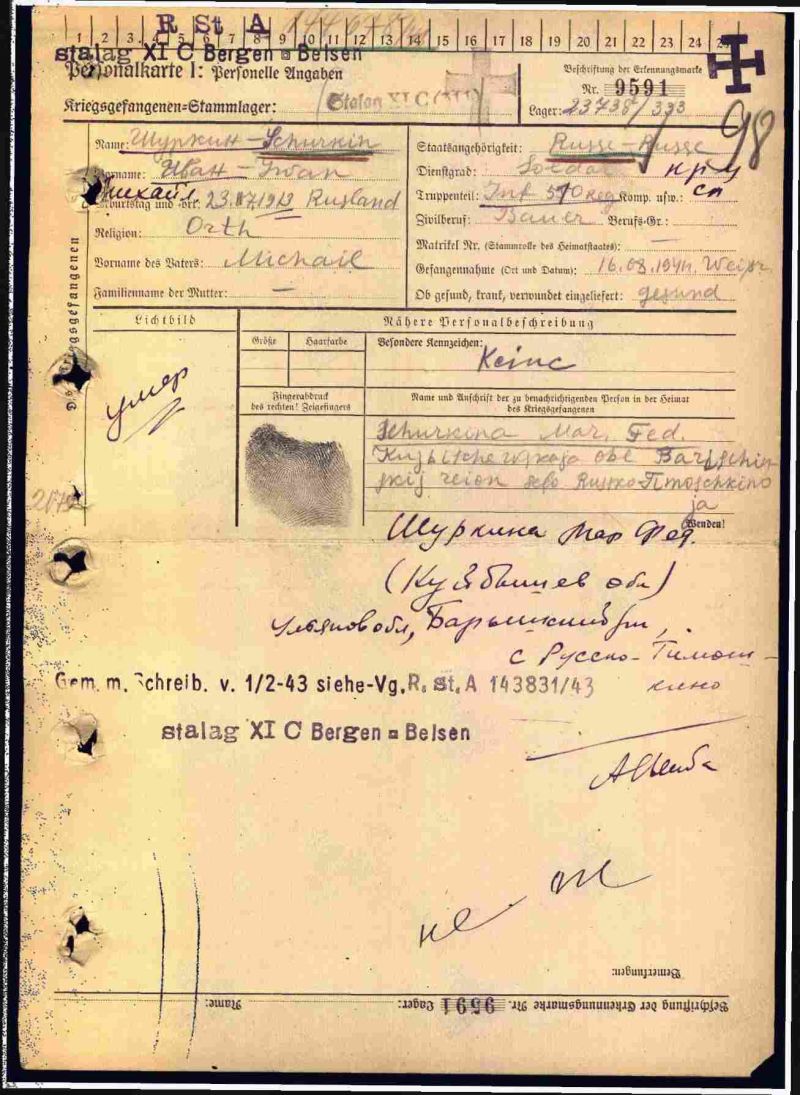 R St A
1 2 3 4 5 6 7 8 9 10 11 12 13 14 15 16 17 18 19 20 21 22 23 24 25
stalag XI C Bergen = Belsen
Personalkarte I: Personelle Angaben
Kriegsgefangenen=Stammlager: Stalag XI C (311)
Beschriftung der Erkennungsmarke
Nr. 9591
Lager: 23738/333
98
Name: Шуркин - Schurkin
Vorname: Иван - Iwan
Михайл
Geburtstag und -ort: 23. 1913 Rusland
Religion: Orth
Vorname des Vaters: Michail
Familienname der Mutter: —
Staatsangehörigkeit: Russe - Russe
Dienstgrad: Soldat кр-ц
Truppenteil: Inf 510 Reg Komp. usw.: сп
Zivilberuf: Bauer Berufs-Gr.:
Matrikel Nr. (Stammrolle des Heimatstaates): —
Gefangennahme (Ort und Datum): 16.08.1941.
Ob gesund, krank, verwundet eingeliefert: gesund
Des Kriegsgefangenen
Lichtbild
Nähere Personalbeschreibung
Größe
Haarfarbe
Besondere Kennzeichen:
Keine
умер
Fingerabdruck
des rechten! Zeigefingers
Name und Anschrift der zu benachrichtigenden Person in der Heimat
des Kriegsgefangenen
Schurkina Mar. Fed.
obl
skij reion selo Rusko-Timoschkino
ja
Wenden!
Шуркина Мар Фед.
(Куйбышев обл)
Ульянов обл, Барышский
с Русско-Тимош-
кино
Gem. m. Schreib. v. 1/2-43 siehe-Vg. R. St. A 143831/43
stalag XI C Bergen = Belsen
Bemerkungen:
Beschriftung der Erkennungsmarke Nr. 9591 Lager: Name: